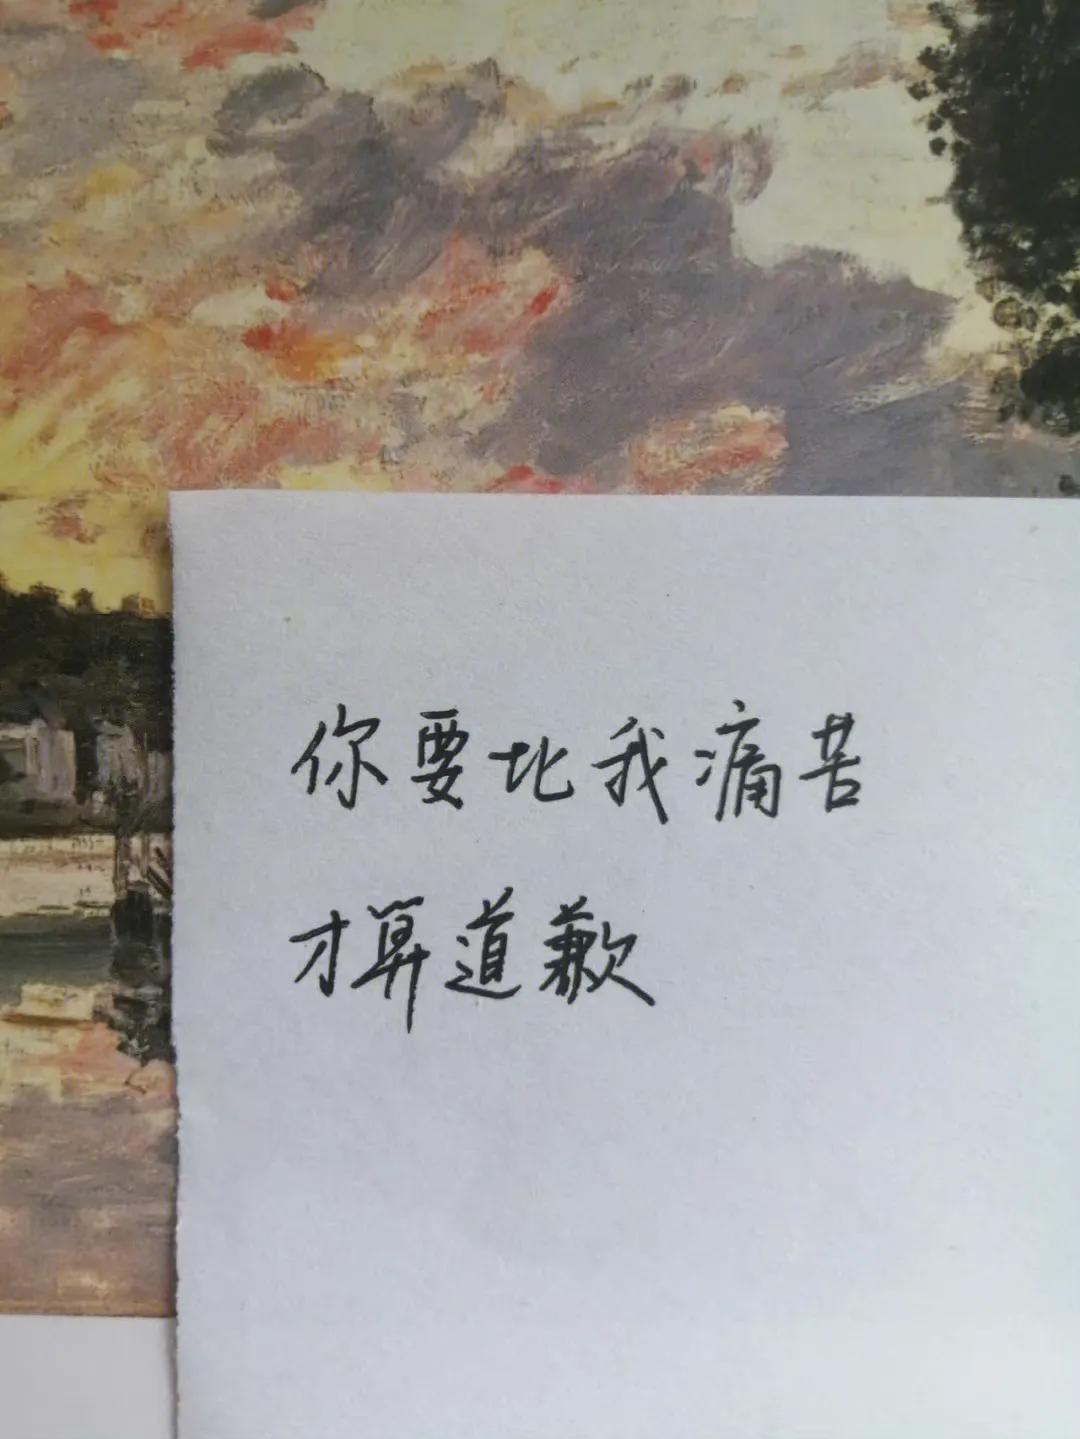 你要比我痛苦
才算道歉